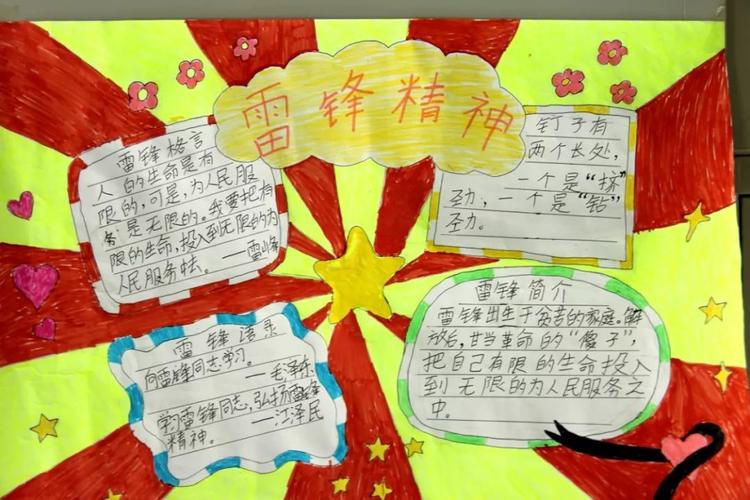 雷锋精神
雷锋格言
人的生命是有
限的，可是，为人民服
务是无限的。我要把有
限的生命，投入到无限的为
人民服务中去。——雷锋
钉子有
两个长处，
一个是“挤”
劲，一个是“钻”
劲。
雷锋语录
向雷锋同志学习。
——毛泽东
学习雷锋同志，弘扬雷锋
精神。——江泽民
雷锋简介
雷锋出生于贫苦的家庭。解
放后，甘当革命的“傻子”，
把自己有限的生命投入
到无限的为人民服务之
中。